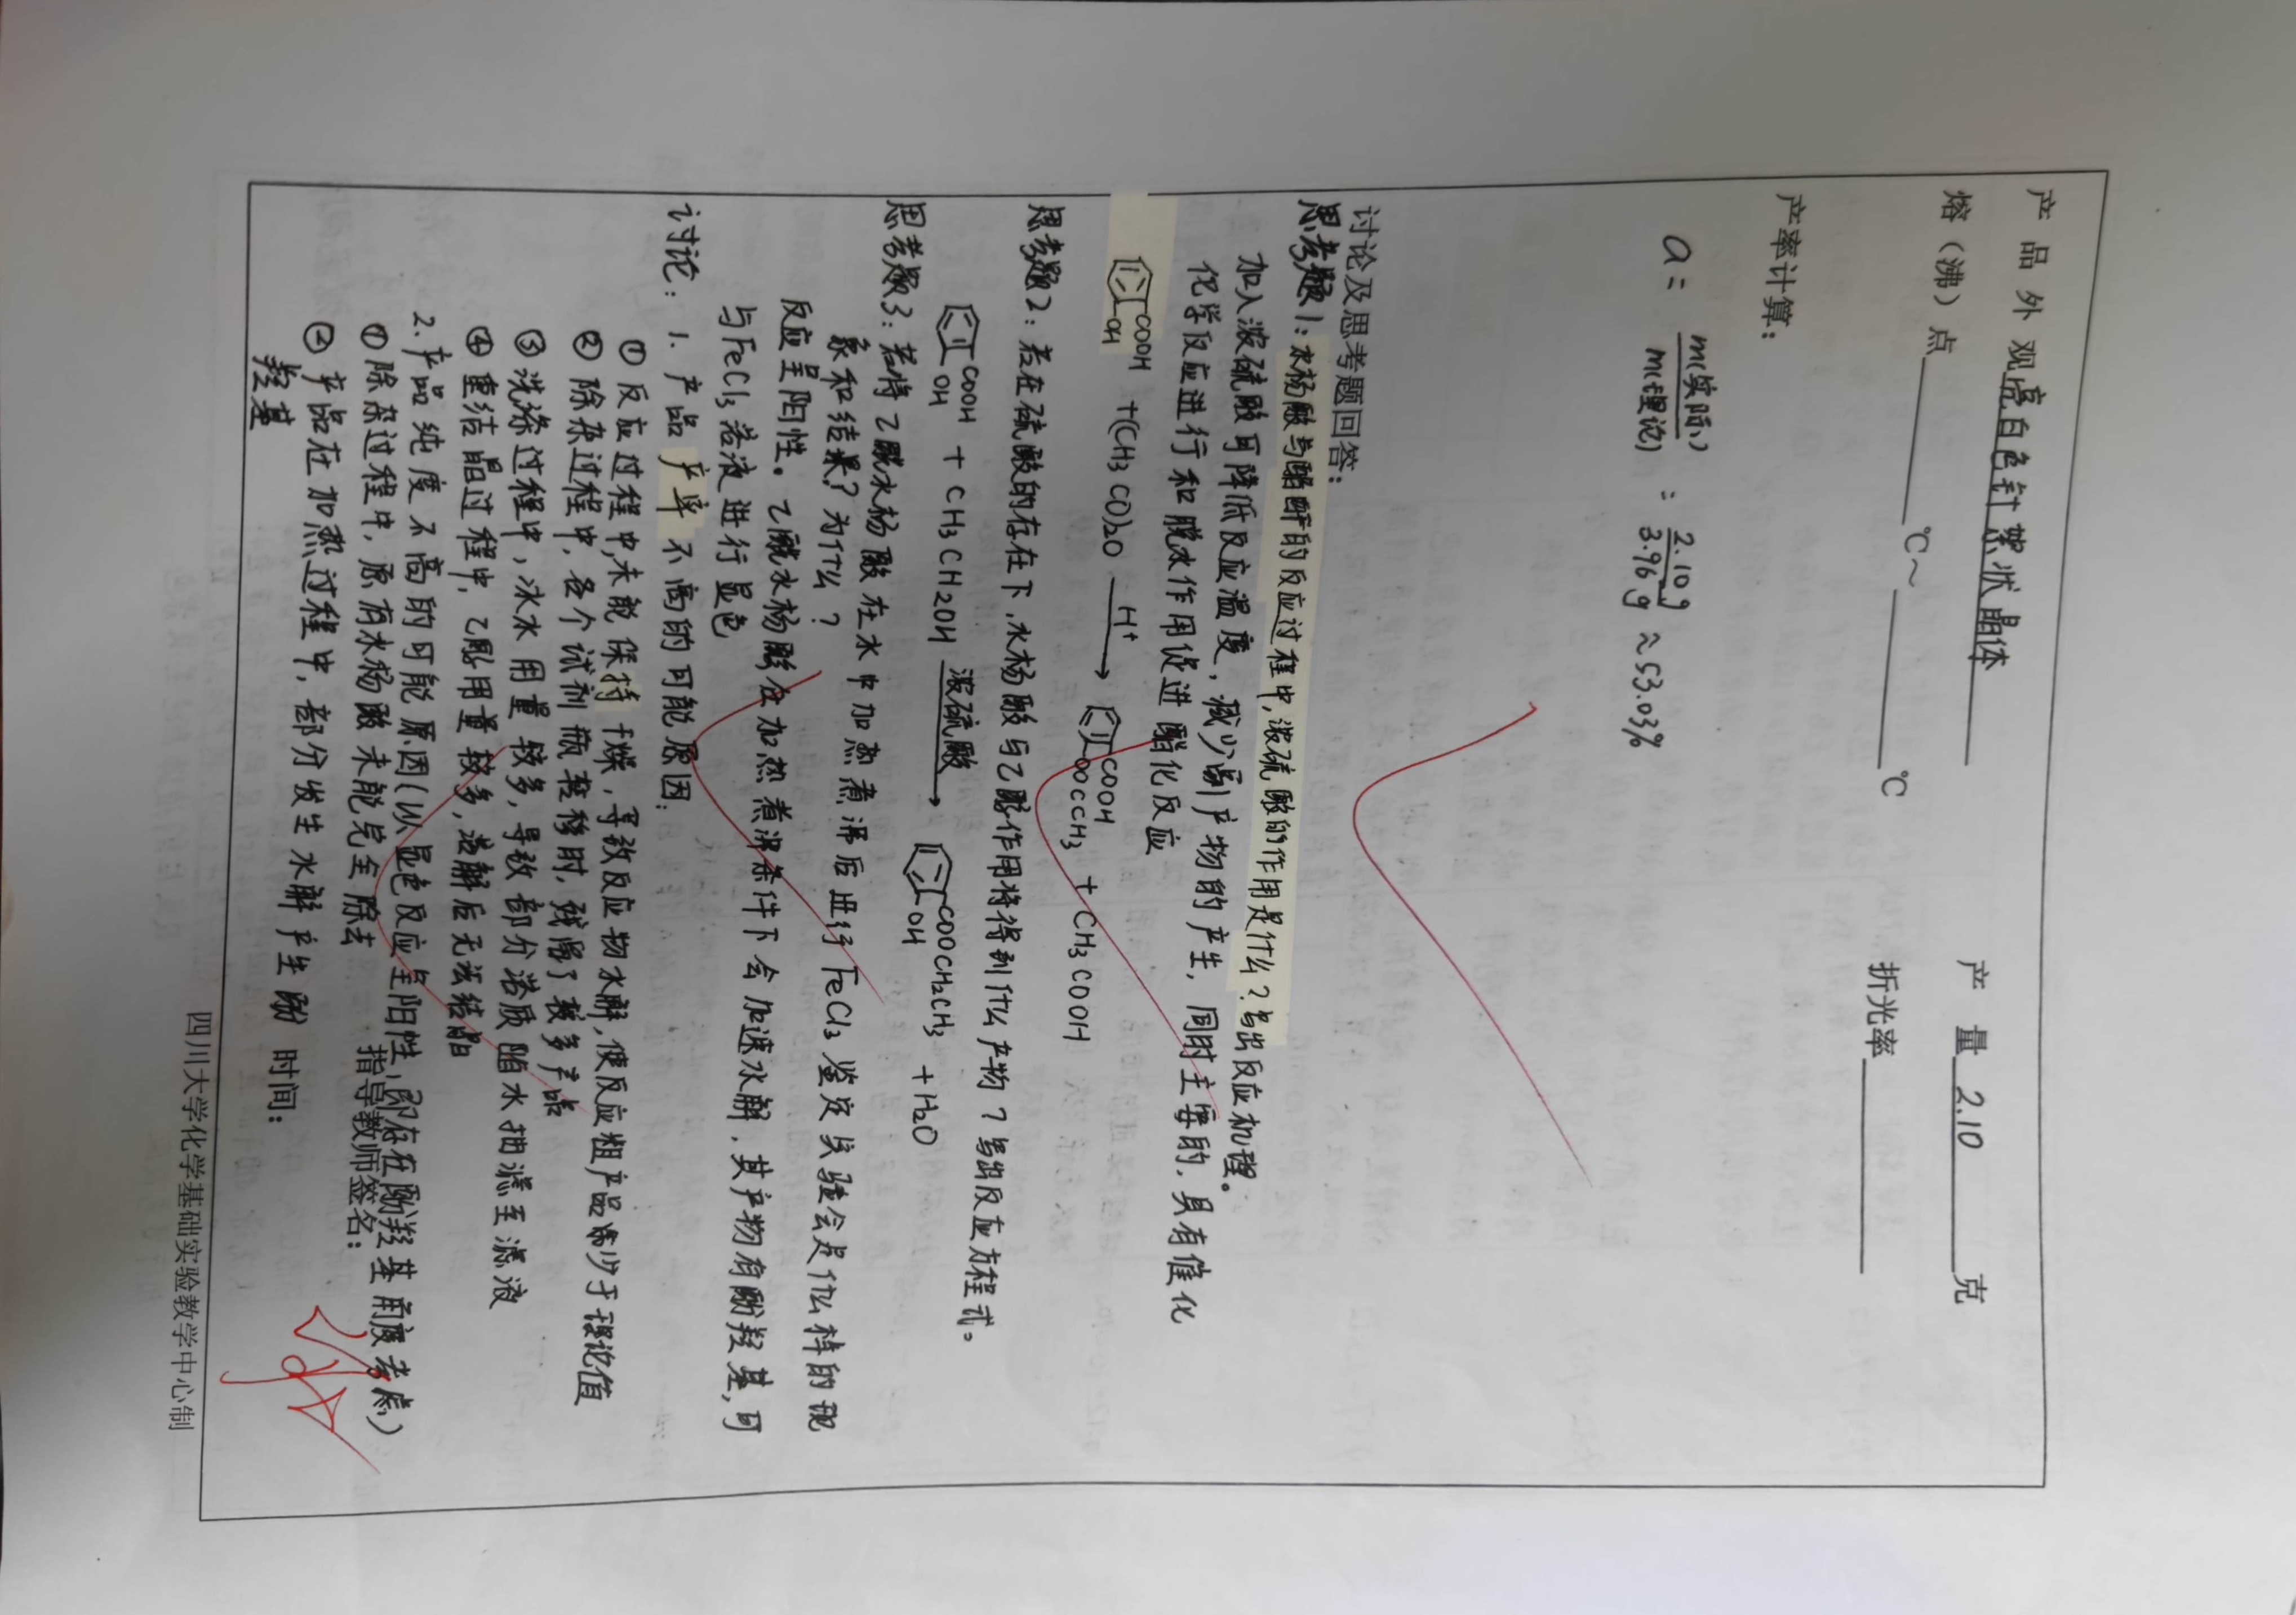 产品外观亮白色针絮状晶体 产量 2.10 克
熔（沸）点 ℃～ ℃ 折光率
产率计算：
a = m(实际) / m(理论) = 2.10g / 3.96g ≈ 53.03%
讨论及思考题回答：
思考题1：水杨酸与醋酐的反应过程中，浓硫酸的作用是什么？写出反应机理。
加入浓硫酸可降低反应温度，减少副产物的产生，同时主要的，具有催化
化学反应进行和脱水作用促进酯化反应
COOH OH +(CH3CO)2O H+ → COOH OOCCH3 + CH3COOH
思考题2：若在硫酸的存在下，水杨酸与乙醇作用将得到什么产物？写出反应方程式。
COOH OH + CH3CH2OH 浓硫酸 → COOCH2CH3 OH + H2O
思考题3：若将乙酰水杨酸在水中加热煮沸后进行FeCl3鉴定实验会是什么样的现
象和结果？为什么？
反应呈阳性。乙酰水杨酸在加热煮沸条件下会加速水解，其产物有酚羟基，可
与FeCl3溶液进行显色
讨论：1. 产品产率不高的可能原因：
① 反应过程中，未能保持干燥，导致反应物水解，使反应粗产品常少于理论值
② 除杂过程中，各个试剂瓶转移时，残留了较多产品
③ 洗涤过程中，冰水用量较多，导致部分溶质随水抽滤至滤液
④ 重结晶过程中，乙醇用量较多，溶解后无法结晶
2. 产品纯度不高的可能原因（从显色反应呈阳性，即存在酚羟基角度考虑）
① 除杂过程中，原有水杨酸未能完全除去
指导教师签名：
② 产品在加热过程中，部分发生水解产生酚
羟基
时间：
四川大学化学基础实验教学中心制